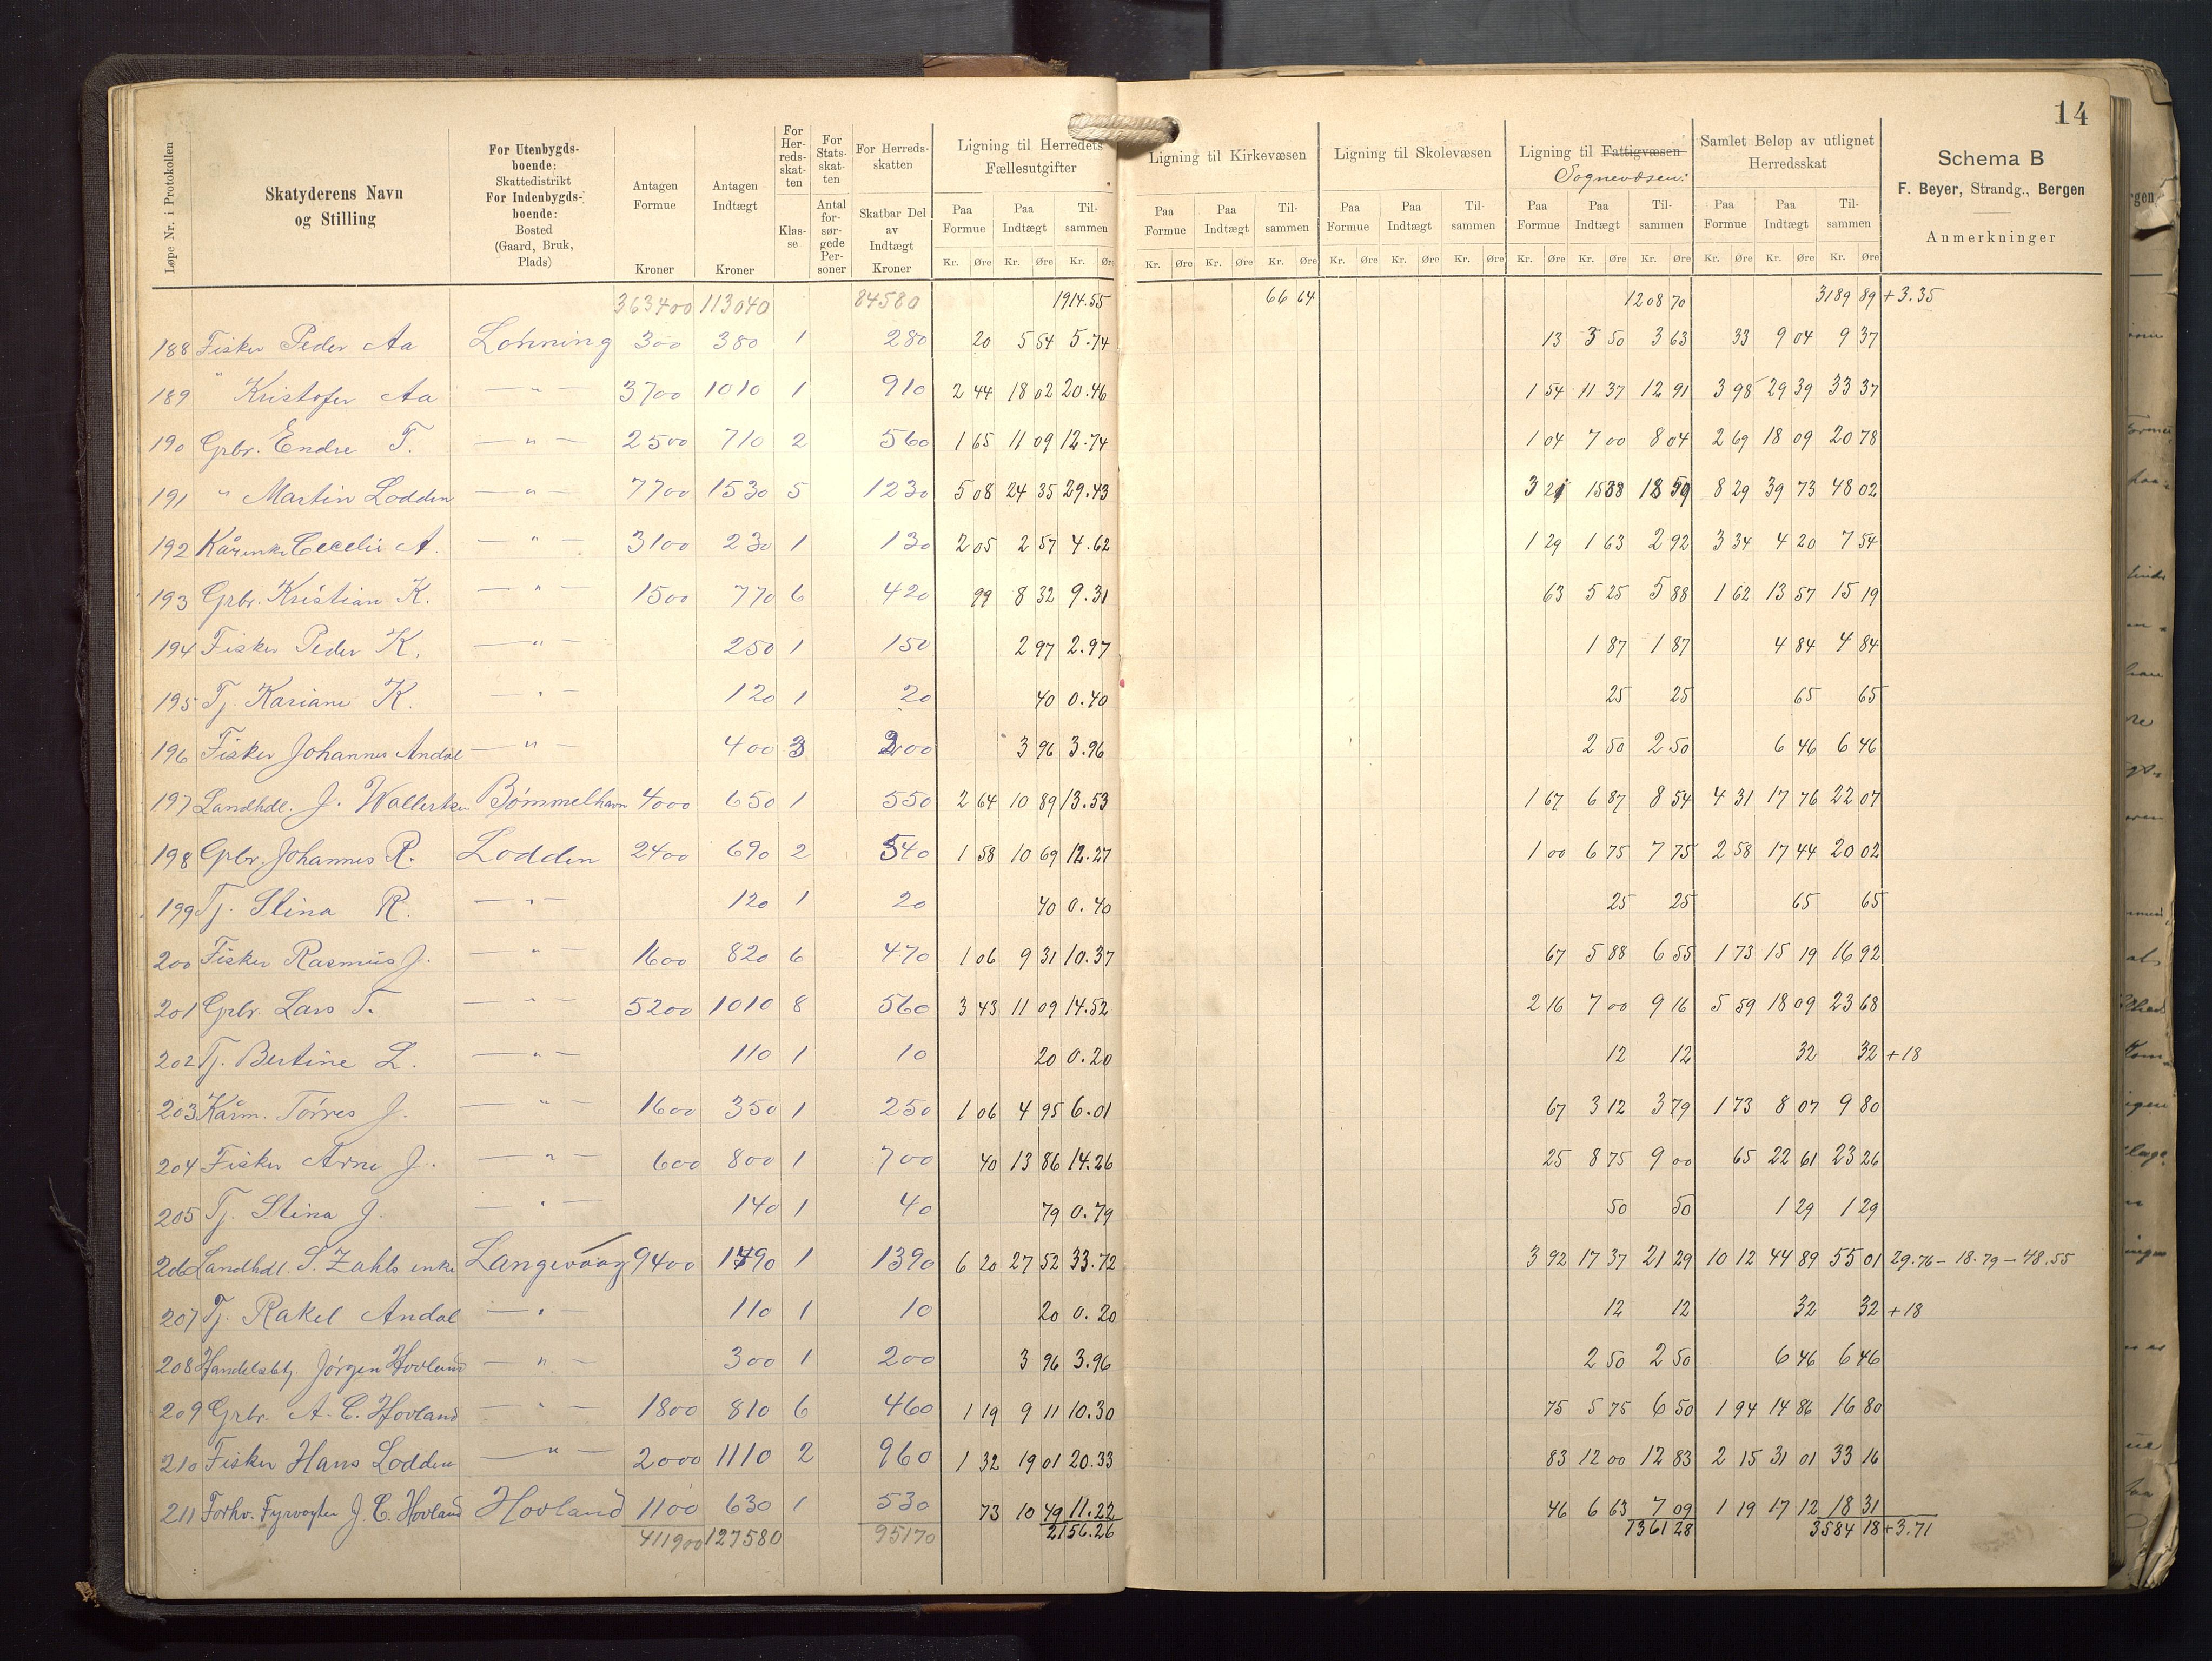 14
Løpe Nr. i Protokollen
Skatyderens Navn og Stilling
For Utenbygds-boende: Skattedistrikt For Indenbygds-boende: Bosted (Gaard, Bruk, Plads)
Antagen Formue Kroner
Antagen Indtægt Kroner
For Her-reds-skat-ten Klas-se
For Stats-skat-ten Antal for-sør-gede Per-soner
For Herreds-skatten Skatbar Del av Indtægt Kroner
Ligning til Herredets Fællesutgifter
Paa Formue Paa Indtægt Til-sammen
Kr. Øre Kr. Øre Kr. Øre
Ligning til Kirkevæsen
Paa Formue Paa Indtægt Til-sammen
Kr. Øre Kr. Øre Kr. Øre
Ligning til Skolevæsen
Paa Formue Paa Indtægt Til-sammen
Kr. Øre Kr. Øre Kr. Øre
Ligning til Fattigvæsen
Sognevæsen:
Paa Formue Paa Indtægt Til-sammen
Kr. Øre Kr. Øre Kr. Øre
Samlet Beløp av utlignet Herredsskat
Paa Formue Paa Indtægt Til-sammen
Kr. Øre Kr. Øre Kr. Øre
Schema B
F. Beyer, Strandg., Bergen
Anmerkninger
363400 113040 84580 1914.55 66 64 1208 70 3189 89 +3.35
188 Fisker Peder Aa Lønning 300 380 1 280 20 5 54 5.74 13 3 50 3 63 33 9 04 9 37
189 " Kristofer Aa — " — 3700 1010 1 910 2 44 18 02 20.46 1 54 11 37 12 91 3 98 29 39 33 37
190 Grbr. Endre T. — " — 2500 710 2 560 1 65 11 09 12.74 1 04 7 00 8 04 2 69 18 09 20 78
191 " Martin Lodden — " — 7700 1530 5 1230 5 08 24 35 29.43 3 21 15 38 18 59 8 29 39 73 48 02
192 Kårenke Cecelie A. — " — 3100 230 1 130 2 05 2 57 4.62 1 29 1 63 2 92 3 34 4 20 7 54
193 Grbr. Kristian K. — " — 1500 770 6 420 99 8 32 9.31 63 5 25 5 88 1 62 13 57 15 19
194 Fisker Peder K. — " — 250 1 150 2 97 2.97 1 87 1 87 4 84 4 84
195 Tj. Kariane K. — " — 120 1 20 40 0.40 25 25 65 65
196 Fisker Johannes Andal — " — 400 3 200 3 96 3.96 2 50 2 50 6 46 6 46
197 Landhdl. J. Bømmelhavn 4000 650 1 550 2 64 10 89 13.53 1 67 6 87 8 54 4 31 17 76 22 07
198 Grbr. Johannes R. Lodden 2400 690 2 540 1 58 10 69 12.27 1 00 6 75 7 75 2 58 17 44 20 02
199 Tj. Stina R. — " — 120 1 20 40 0.40 25 25 65 65
200 Fisker Rasmus J. — " — 1600 820 6 470 1 06 9 31 10.37 67 5 88 6 55 1 73 15 19 16 92
201 Grbr. Lars T. — " — 5200 1010 8 560 3 43 11 09 14.52 2 16 7 00 9 16 5 59 18 09 23 68
202 Tj. Bertine L. — " — 110 1 10 20 0.20 12 12 32 32 +18
203 Kårm. Tørres J. — " — 1600 350 1 250 1 06 4 95 6.01 67 3 12 3 79 1 73 8 07 9 80
204 Fisker Arne J. — " — 600 800 1 700 40 13 86 14.26 25 8 75 9 00 65 22 61 23 26
205 Tj. Stina J. — " — 140 1 40 79 0.79 50 50 1 29 1 29
206 Landhdl. S. Zahls enke Langevaag 9400 1490 1 1390 6 20 27 52 33.72 3 92 17 37 21 29 10 12 44 89 55 01 29.76 – 18.79 – 48.55
207 Tj. Rakel Andal — " — 110 1 10 20 0.20 12 12 32 32 +18
208 Handelsbtj. Jørgen Hovland — " — 300 1 200 3 96 3.96 2 50 2 50 6 46 6 46
209 Grbr. A. C. Hovland — " — 1800 810 6 460 1 19 9 11 10.30 75 5 75 6 50 1 94 14 86 16 80
210 Fisker Hans Lodden — " — 2000 1110 2 960 1 32 19 01 20.33 83 12 00 12 83 2 15 31 01 33 16
211 Forhv. Fyrvogter J. C. Hovland Hovland 1100 630 1 530 73 10 49 11.22 46 6 63 7 09 1 19 17 12 18 31
411900 127580 95170 2156.26 1361 28 3584 18 +3.71